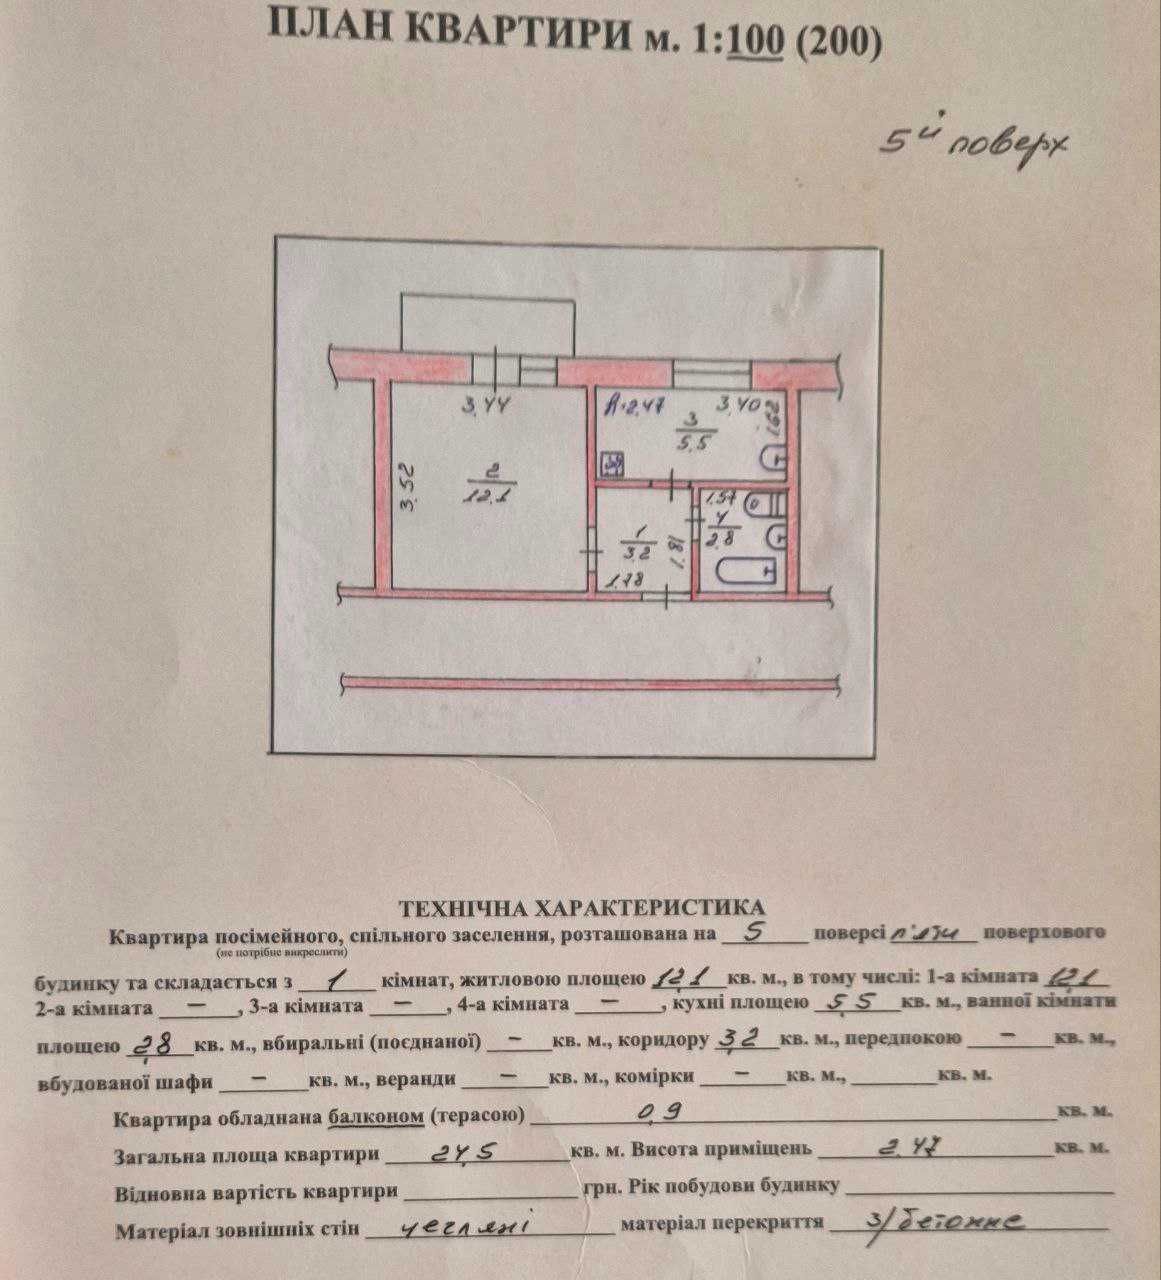 ПЛАН КВАРТИРИ м. 1:100 (200)
5й поверх
3,44
h-2,47
3,40
1,62
3
5,5
3,52
2
12,1
1,57
4
2,8
1
3,2
1,81
1,78
ТЕХНІЧНА ХАРАКТЕРИСТИКА
Квартира посімейного, спільного заселення, розташована на 5 поверсі п'яти поверхового
(не потрібне викреслити)
будинку та складається з 1 кімнат, житловою площею 12,1 кв. м., в тому числі: 1-а кімната 12,1
2-а кімната — , 3-а кімната — , 4-а кімната — , кухні площею 5,5 кв. м., ванної кімнати
площею 2,8 кв. м., вбиральні (поєднаної) — кв. м., коридору 3,2 кв. м., передпокою — кв. м.,
вбудованої шафи — кв. м., веранди — кв. м., комірки — кв. м., ______ кв. м.
Квартира обладнана балконом (терасою) 0,9 кв. м.
Загальна площа квартири 24,5 кв. м. Висота приміщень 2,47 кв. м.
Відновна вартість квартири ______ грн. Рік побудови будинку ______
Матеріал зовнішніх стін цегляні матеріал перекриття з/бетонне